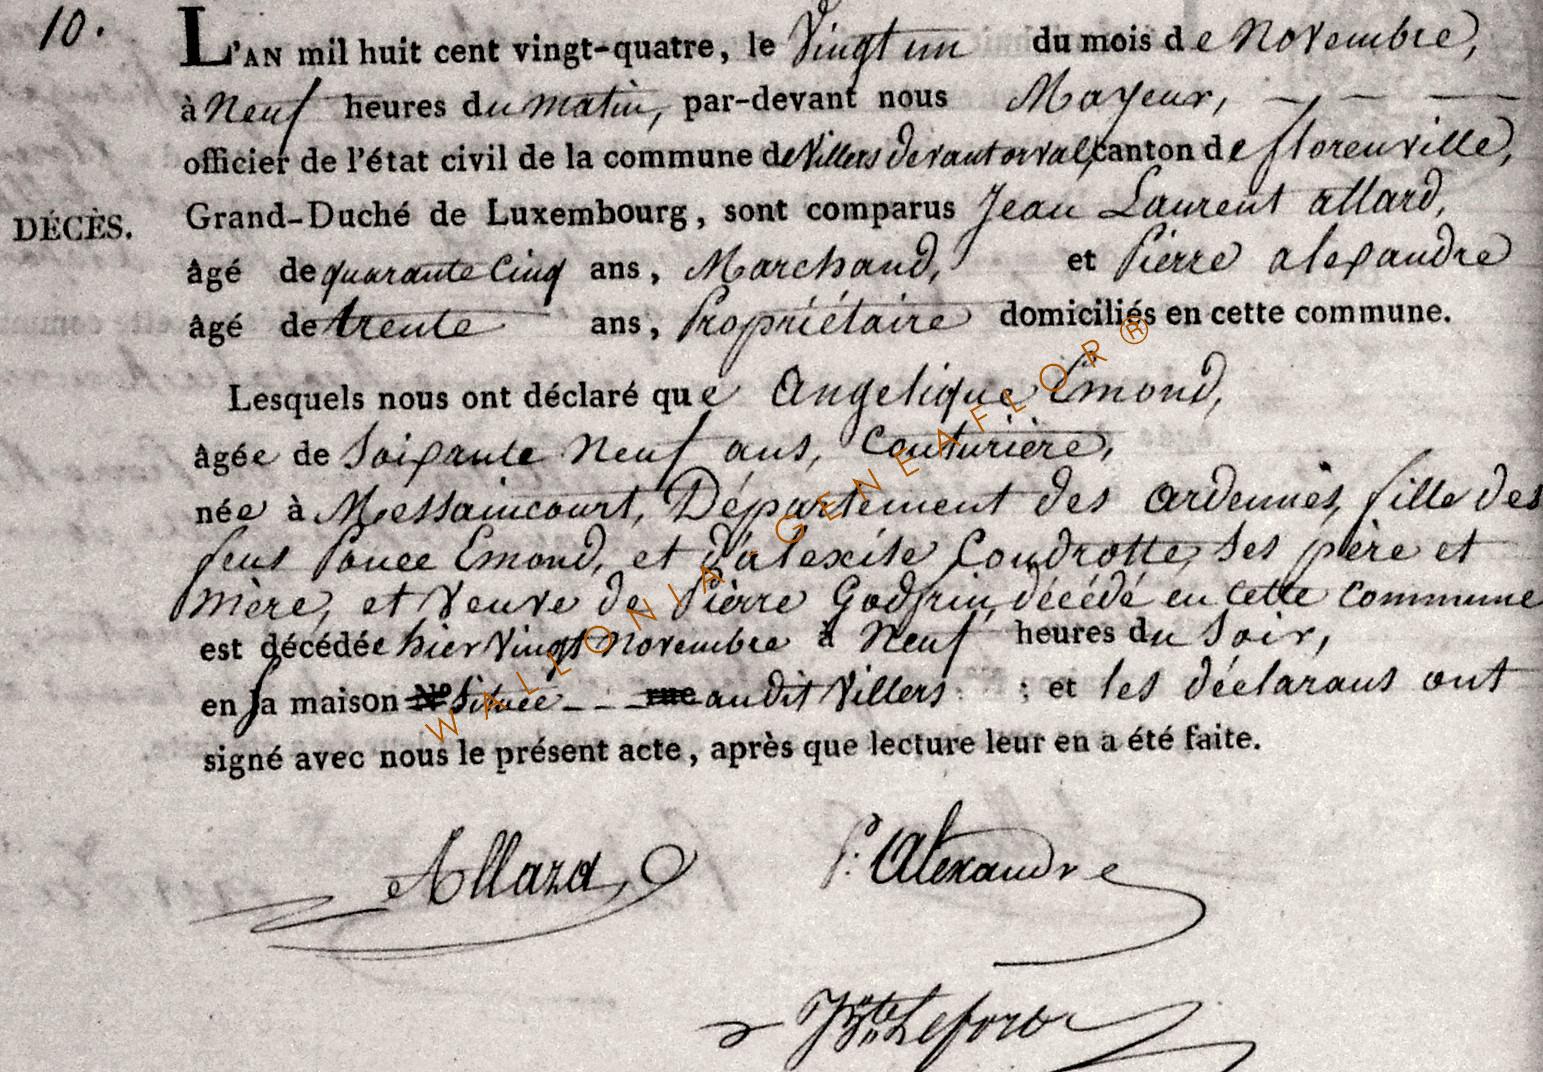 10.
L'AN mil huit cent vingt-quatre, le Vingt un du mois de Novembre,
à Neuf heures du matin, par-devant nous Mayeur,
officier de l'état civil de la commune de Villers devant orval, canton de florenville,
DÉCÈS.
Grand-Duché de Luxembourg, sont comparus Jean Laurent allard,
âgé de quarante Cinq ans, Marchand, et Pierre alexandre
âgé de trente ans, Propriétaire domiciliés en cette commune.
Lesquels nous ont déclaré que Angelique Emond,
âgée de Soixante Neuf ans, Couturière,
née à Messaincourt, Département des ardennes, fille des
feus Ponce Emond, et d'alexise Coudrotte, Ses père et
Mère, et Veuve de Pierre Godfrin, décédé en Cette Commune
est décédée hier Vingt Novembre à Neuf heures du Soir,
en sa maison N° Située rue audit Villers ; et les déclarans ont
signé avec nous le présent acte, après que lecture leur en a été faite.
Allard
P. Alexandre
WALLONIA-GENEAFLOR®